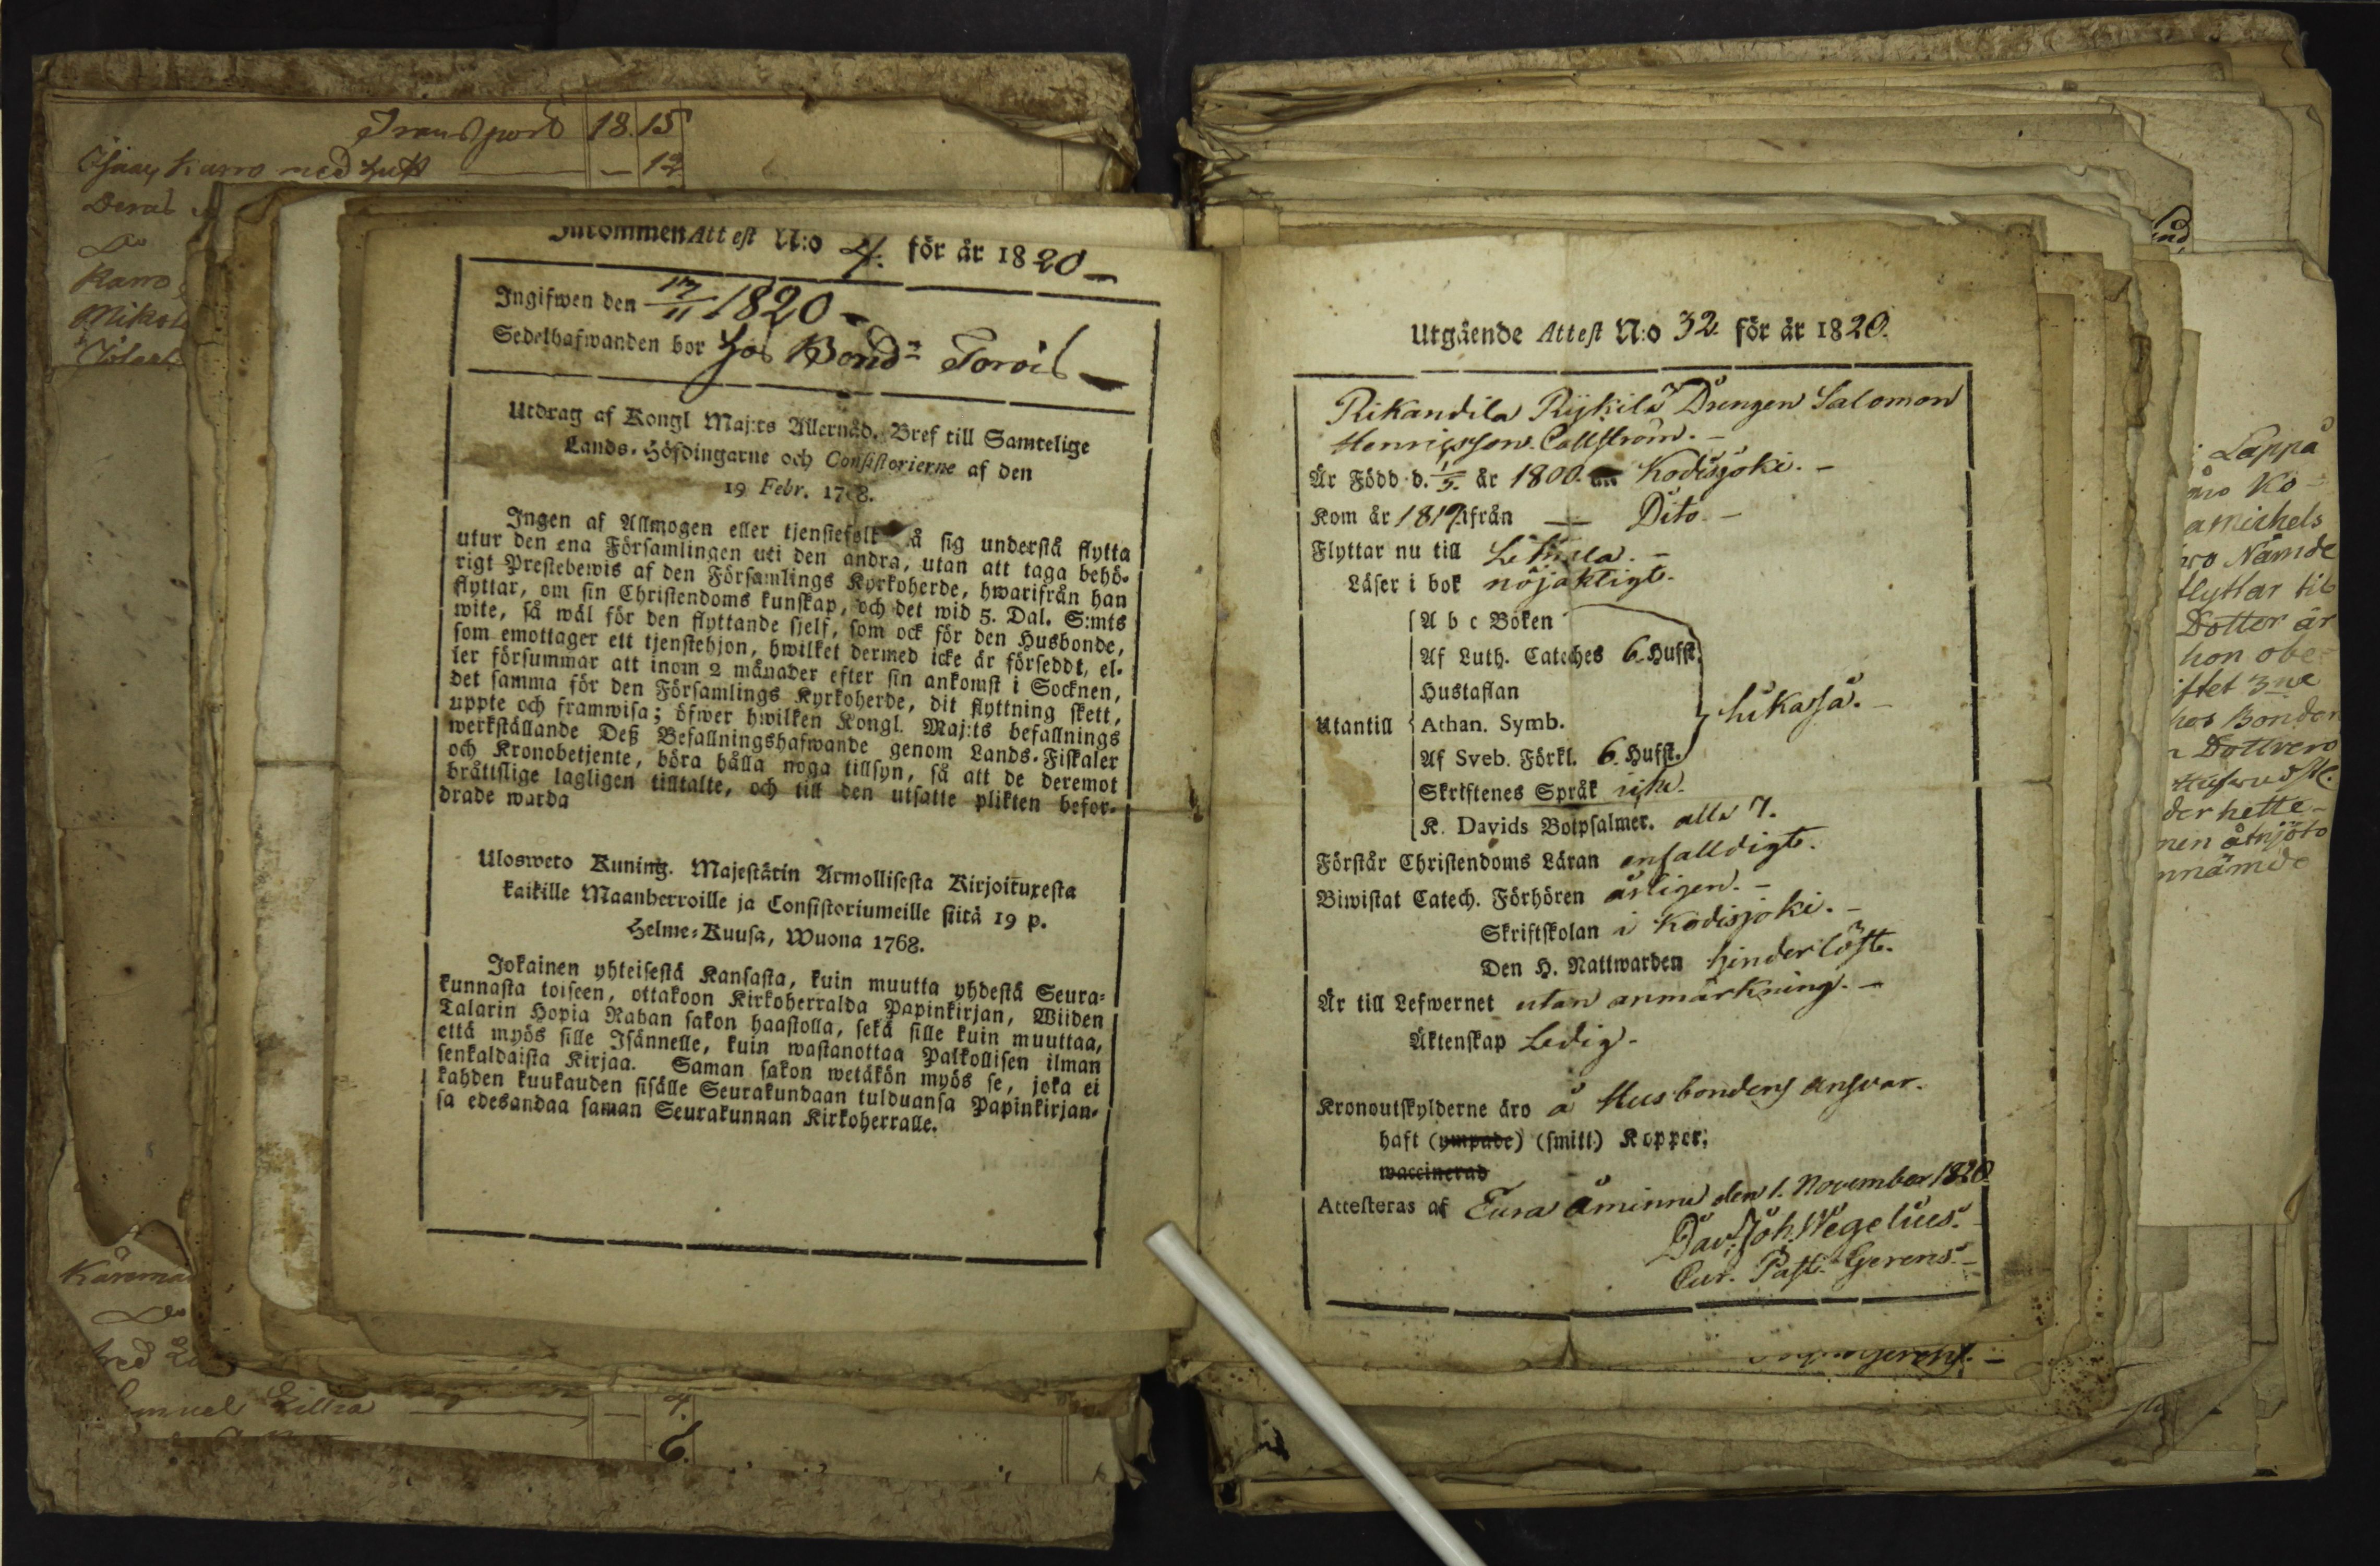 Transport 18. 15
Karro med hust — — 12
Deras
Do
Karro
Inkommen Attest N:o 4. för år 1820 —
Ingifwen den 17/11 1820 —
Sedelhafwanden bor hos Bond Torois —
Utdrag af Kongl Maj:ts Allernåd. Bref till Samtelige
Lands-Höfdingarne och Consistorierne af den
19 Febr. 1768.
Ingen af Allmogen eller tjenstefolk må sig understå flytta
utur den ena Församlingen uti den andra, utan att taga behö-
rigt Prestebewis af den Församlings Kyrkoherde, hwarifrån han
flyttar, om sin Christendoms kunskap, och det wid 5. Dal. S:mts
wite, så wäl för den flyttande sjelf, som ock för den Husbonde,
som emottager ett tjenstehjon, hwilket dermed icke är förseddt, el-
ler försummar att inom 2 månader efter sin ankomst i Socknen,
det samma för den Församlings Kyrkoherde, dit flyttning skett,
uppte och framwisa; öfwer hwilken Kongl. Maj:ts befallnings
werkställande Deß Befallningshafwande genom Lands-Fiskaler
och Kronobetjente, böra hålla noga tillsyn, så att de deremot
bråttslige lagligen tilltalte, och till den utsatte plikten befor-
drade warda
Ulosweto Kuning. Majestätin Armollisesta Kirjoituxesta
kaikille Maanherroille ja Consistoriumeille siitä 19 p.
Helme-Kuusa, Wuona 1768.
Jokainen yhteisestä Kansasta, kuin muutta yhdestä Seura-
kunnasta toiseen, ottakoon Kirkoherralda Papinkirjan, Wiiden
Talarin Hopia Rahan sakon haastolla, sekä sille kuin muuttaa,
että myös sille Isännelle, kuin wastanottaa Palkollisen ilman
senkaldaista Kirjaa. Saman sakon wetäkön myös se, joka ei
kahden kuukauden sisälle Seurakundaan tulduansa Papinkirjan-
sa edesandaa saman Seurakunnan Kirkoherralle.
Do
4.
6.
Utgående Attest N:o 32. för år 1820.
Rikandila Rijkilä Drengen Salomon
Henricsson Callström. –
Är Född d. 1/5. år 1800. Kodisjoki. –
Kom år 1819. ifrån — Dito –
Flyttar nu till Letala. –
Läser i bok nöjaktigt.
A b c Boken
Af Luth. Cateches 6. Hufst.
Hustaflan
Utantill Athan. Symb. likaså. –
Af Sveb. Förkl. 6. Hufst.
Skriftenes Språk icke.
K. Davids Botpsalmer. alla 7.
Förstår Christendoms Läran enfalldigt.
Biwistat Catech. Förhören årligen. –
Skriftskolan i Kodisjoki. –
Den H. Nattwarden hinderlöst.
Är till Lefwernet utan anmärkning. –
Äktenskap Ledig –
Kronoutskylderne äro å Husbondens ansvar.
haft (ympade) (smitt) Koppor;
waccinerad
Attesteras af Eura Åminne den 1. November 1820.
Dav. Joh. Wegelius.
Cur. Past. Gerens. –
Lappa
Ko –
amichels
Nämde
flyttar til
Dotter är
hon obe-
hos Bonden
der hette –
nen åtnjöto
nnämde